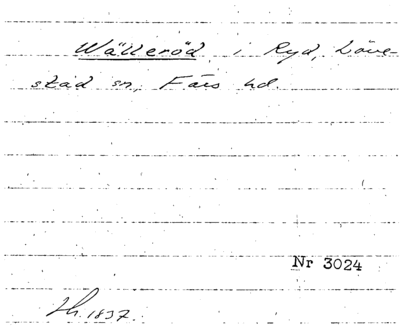 Wälleröd, i Ryd, Löve-
stad sn, Färs hd.
Nr 3024
Th. 1837.